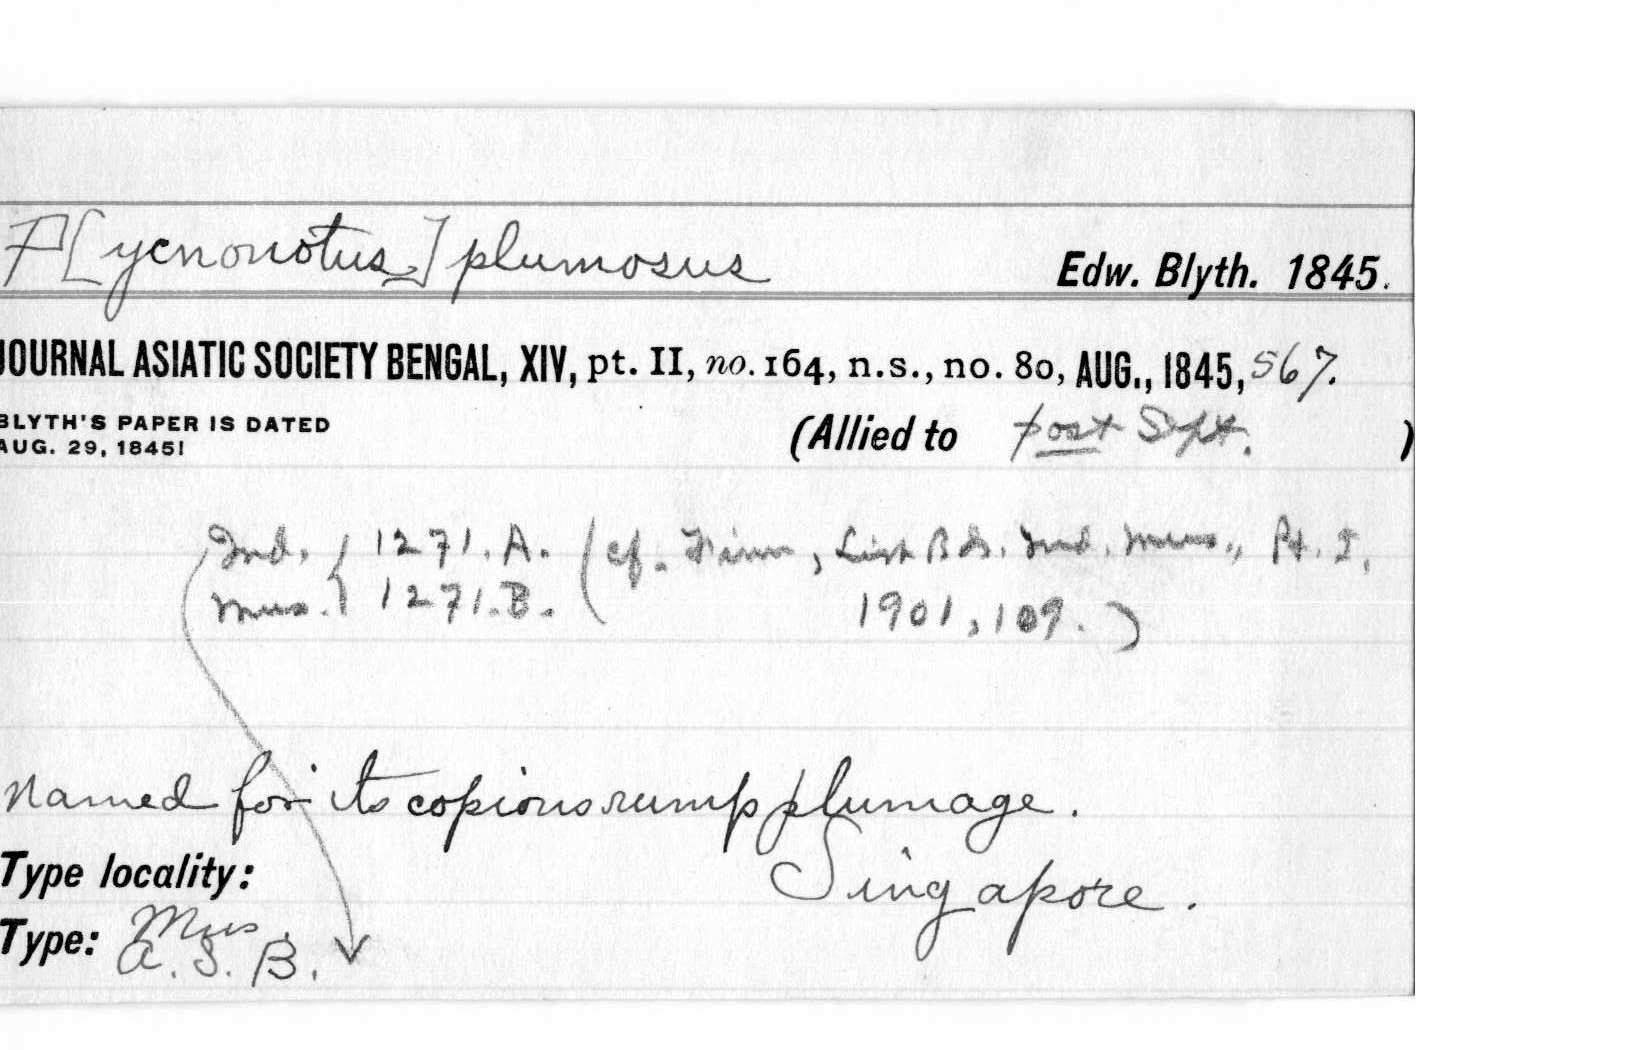 P[ycnonotus] plumosus Edw. Blyth. 1845.
JOURNAL ASIATIC SOCIETY BENGAL, XIV, pt. II, no. 164, n.s., no. 80, AUG., 1845, 567.
BLYTH'S PAPER IS DATED
AUG. 29, 1845!
(Allied to post Sept. )
Ind. } 1271. A. (cf. Finn, List Bds. Ind. Mus., Pt. I,
Mus. } 1271. B. 1901, 109.)
Named for its copious rump plumage.
Type locality: Singapore.
Type: Mus.
A. S. B.